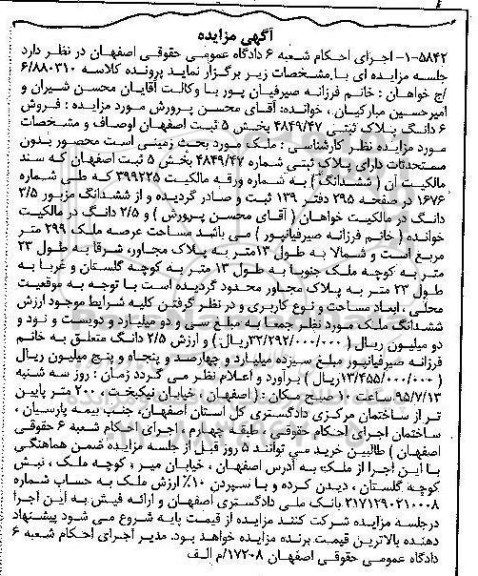 آگهی مزایده
۱-۵۸۴۲- اجرای احکام شعبه ۶ دادگاه عمومی حقوقی اصفهان در نظر دارد
جلسه مزایده ای با مشخصات زیر برگزار نماید پرونده کلاسه ۶/۸۸۰۳۱۰
/ج خواهان : خانم فرزانه صیرفیان پور با وکالت آقایان محسن شیران و
امیرحسین مبارکیان ، خوانده: آقای محسن پرورش مورد مزایده : فروش
۶ دانگ پلاک ثبتی ۴۸۴۹/۴۷ بخش ۵ ثبت اصفهان اوصاف و مشخصات
مورد مزایده نظر کارشناسی : ملک مورد بحث زمینی است محصور بدون
مستحدثات دارای پلاک ثبتی شماره ۴۸۴۹/۴۷ بخش ۵ ثبت اصفهان که سند
مالکیت آن ( ششدانگ ) به شماره ورقه مالکیت ۳۹۹۲۲۵ که طی شماره
۱۶۷۶ در صفحه ۲۹۵ دفتر ۱۳۹ ثبت و صادر گردیده و از ششدانگ مزبور ۳/۵
دانگ در مالکیت خواهان ( آقای محسن پرورش ) و ۲/۵ دانگ در مالکیت
خوانده ( خانم فرزانه صیرفیانپور ) می باشد مساحت عرصه ملک ۲۹۹ متر
مربع است و شمالا به طول ۱۳متر به پلاک مجاور، شرقا به طول ۲۳
متر به کوچه ملک جنوبا به طول ۱۳ متر به کوچه گلستان و غربا به
طول ۲۳ متر به پلاک مجاور محدود گردیده است با توجه به موقعیت
محلی ، ابعاد مساحت و نوع کاربری و در نظر گرفتن کلیه شرایط موجود ارزش
ششدانگ ملک مورد نظر جمعا به مبلغ سی و دو میلیارد و دویست و نود و
دو میلیون ریال ( ۳۲/۲۹۲/۰۰۰/۰۰۰ریال ) و ارزش ۲/۵ دانگ متعلق به خانم
فرزانه صیرفیانپور مبلغ سیزده میلیارد و چهارصد و پنجاه و پنج میلیون ریال
( ۱۳/۴۵۵/۰۰۰/۰۰۰ریال ) برآورد و اعلام نظر می گردد زمان : روز سه شنبه
۹۵/۷/۱۳ ساعت ۱۰ صبح مکان : ( اصفهان ، خیابان نیکبخت، ۲۰۰ متر پایین
تر از ساختمان مرکزی دادگستری کل استان اصفهان، جنب بیمه پارسیان ،
ساختمان اجرای احکام حقوقی ، طبقه چهارم ، اجرای احکام شعبه ۶ حقوقی
اصفهان ) طالبین خرید می توانند ۵ روز قبل از جلسه مزایده ضمن هماهنگی
با این اجرا از ملک به آدرس اصفهان ، خیابان میر ، کوچه ملک ، نبش
کوچه گلستان ، دیدن کرده و با سپردن ۱۰٪ ارزش ملک به حساب شماره
۲۱۷۱۲۹۰۲۱۰۰۰۸ بانک ملی دادگستری اصفهان و ارائه فیش به این اجرا
درجلسه مزایده شرکت کنند مزایده از قیمت پایه شروع می شود پیشنهاد
دهنده بالاترین قیمت برنده مزایده خواهد بود. مدیر اجرای احکام شعبه ۶
دادگاه عمومی حقوقی اصفهان ۱۷۲۰۸/م الف